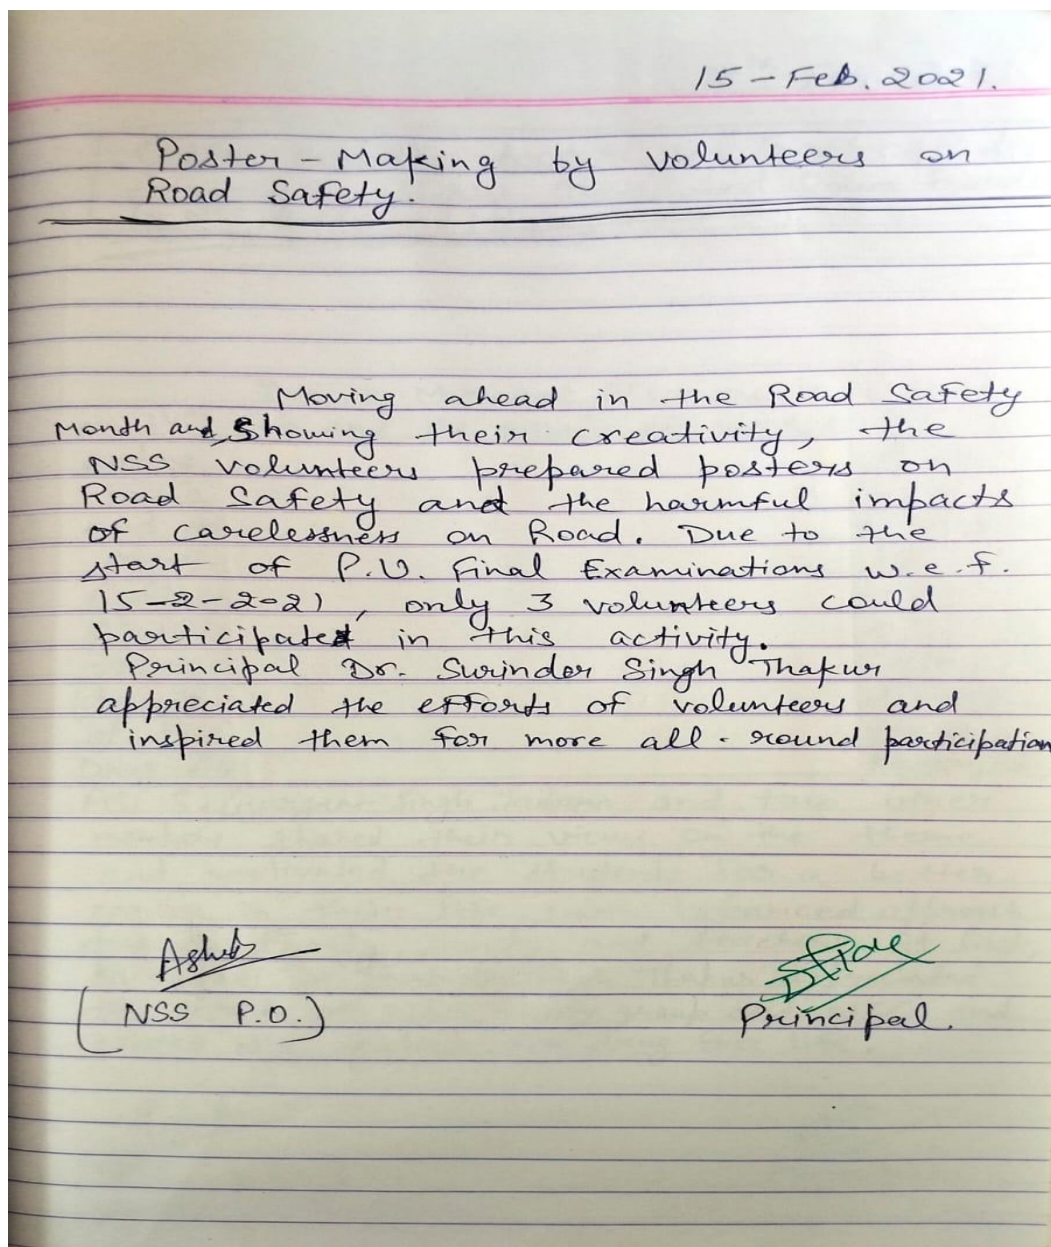 15 - Feb. 2021.
Poster - Making by volunteers on
Road Safety.
Moving ahead in the Road Safety
Month and, Showing their creativity, the
NSS volunteers prepared posters on
Road Safety and the harmful impacts
of carelessness on Road. Due to the
start of P.U. Final Examinations w.e.f.
15-2-2021, only 3 volunteers could
participate in this activity.
Principal Dr. Surinder Singh Thakur
appreciated the efforts of volunteers and
inspired them for more all-round participation
(NSS P.O.)
Principal.